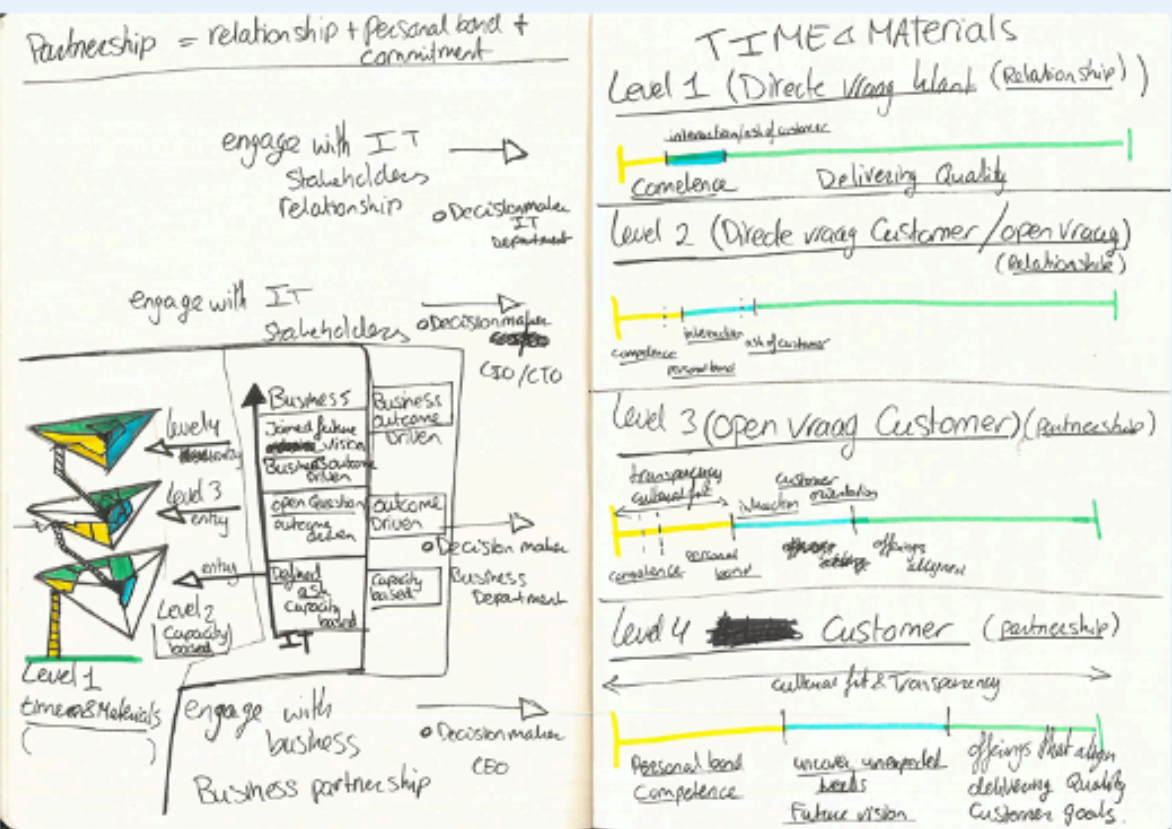 Partnership = relationship + personal bond +
commitment
engage with IT
Stakeholders
relationship
Decisionmaker
IT
Department
engage with IT
Stakeholders
Decisionmaker
CIO/CTO
Business
Joined future
vision
Business outcome
Driven
open Question
outcome
driven
Defined
ask
Capacity
based
IT
Business
outcome
Driven
outcome
Driven
Capacity
based
Level 4
Level 3
entry
entry
Level 2
Capacity
based
Level 1
time & Materials
( )
Decision maker
Business
Department
engage with
business
Business partnership
Decisionmaker
CEO
TIME & MATERIALS
Level 1 (Directe vraag klant (Relationship))
interaction/ask of customer
Comelence
Delivering Quality
Level 2 (Directe vraag Customer/open vraag)
(Relationship)
interaction
ask of customer
competence
personal bond
Level 3 (open vraag Customer) (partnership)
transparency
cultural fit
interaction
customer
orientation
competence
personal
bond
offerings
Level 4 Customer (partnership)
cultural fit & Transparency
Personal bond
Competence
uncover unexpected
needs
Future vision
offerings that align
delivering Quality
Customer goals.